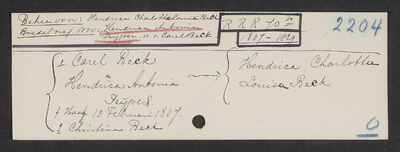 Beheer v. v.: Hendrica Charlotta Louisa Beck
Boedel nag. v. v.: Hendrica Antonia
Peypers, w. v. Carel Beck
R R R 70
1807-1829
2204
1 Carel Beck
Hendrica Antonia
Peypers.
† Haag 13 Februari 1807.
2 Christina Beck
Hendrica Charlotta
Louisa Beck